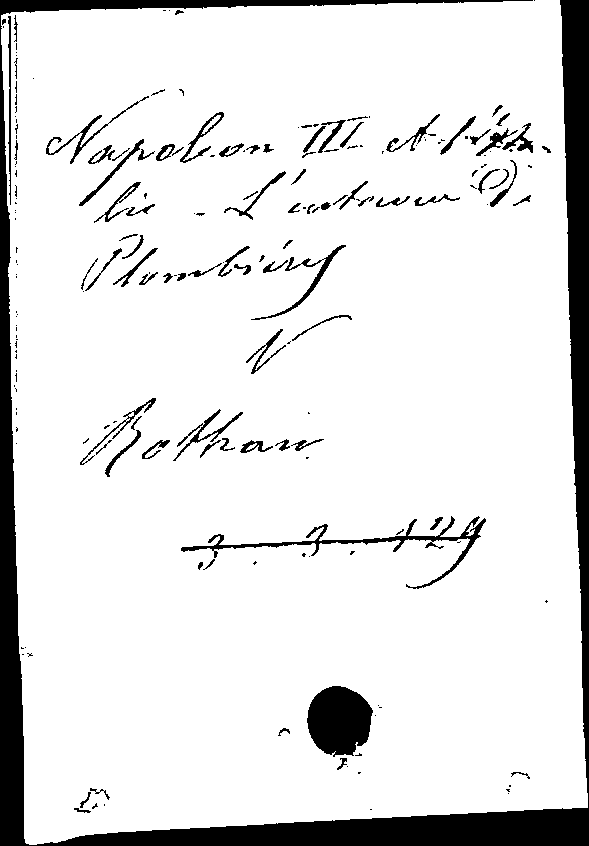 Napoleon III et l'Ita-
lie - L'entrevue de
Plombières
V
Rothan
3. 3. 129